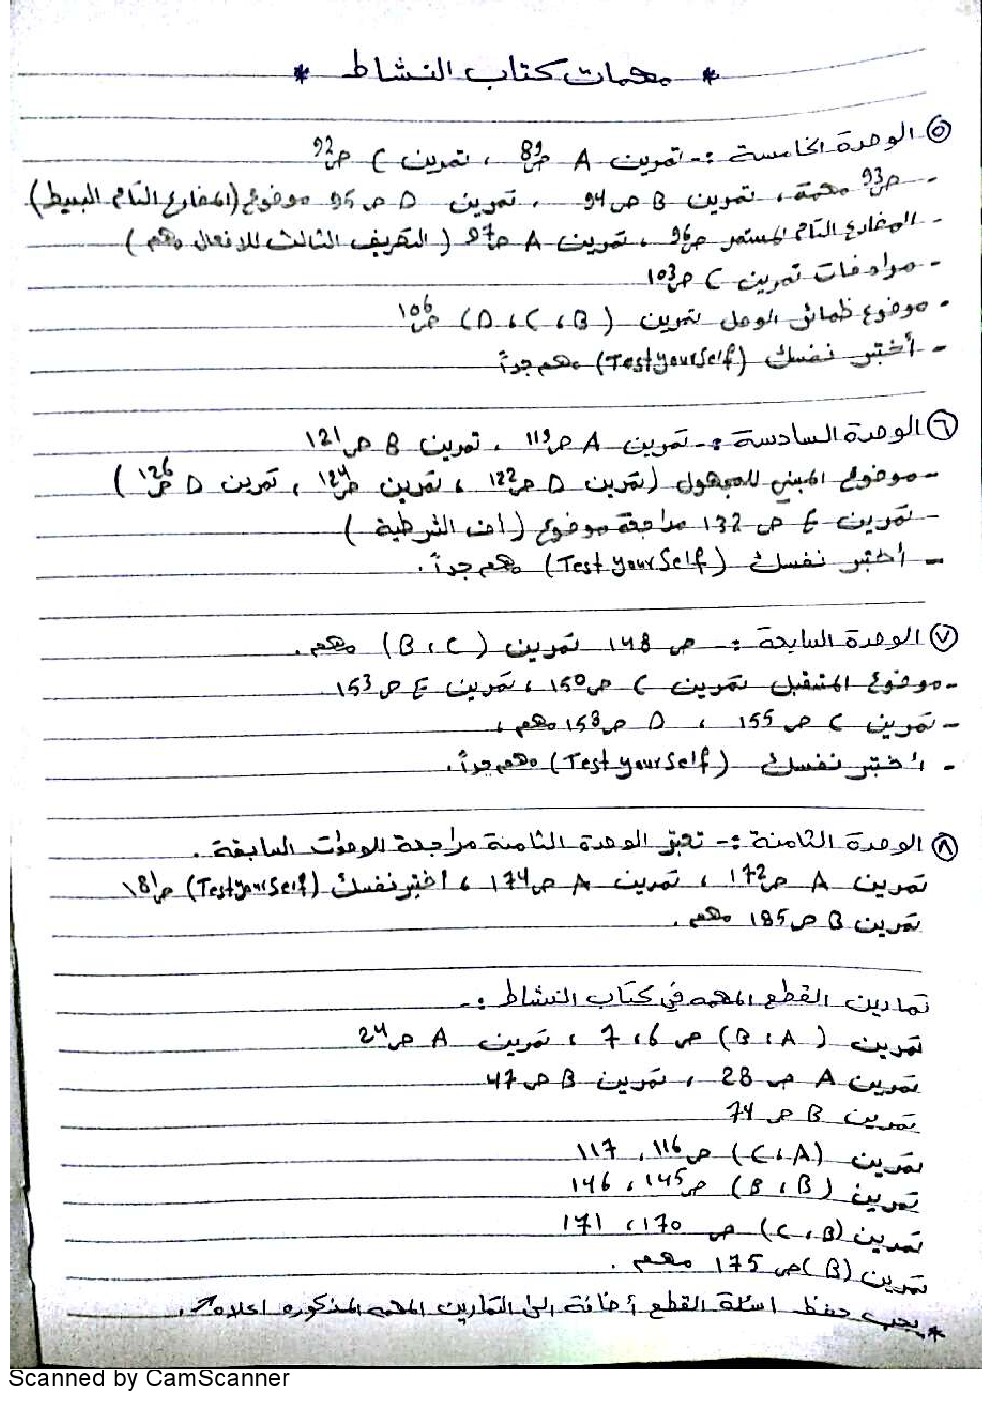 * مهمات كتاب النشاط *
٥ الوحدة الخامسة :- تمرين A ص89 ، تمرين C ص92
- ص93 مهمة ، تمرين B ص94 ، تمرين D ص95 موضوع (المضارع التام البسيط)
- المضارع التام المستمر ص96 ، تمرين A ص97 ( التصريف الثالث للافعال مهم )
- مرادفات تمرين C ص103
- موضوع ضمائر الوصل تمرين ( B ، C ، D ) ص106
- أختبر نفسك (Test yourself) مهم جداً
٦ الوحدة السادسة :- تمرين A ص119 ، تمرين B ص121
- موضوع المبني للمجهول (تمرين D ص122 ، تمرين ص124 ، تمرين D ص126 )
- تمرين E ص 132 مراجعة موضوع ( اف الشرطية )
- أختبر نفسك (Test yourself) مهم جداً .
٧ الوحدة السابعة :- ص 148 تمرين ( B ، C ) مهم .
- موضوع المستقبل تمرين C ص150 ، تمرين E ص153
- تمرين C ص 155 ، D ص158 مهم ،
- أختبر نفسك (Test yourself) مهم جداً .
٨ الوحدة الثامنة :- تعتبر الوحدة الثامنة مراجعة للوحدات السابقة .
تمرين A ص172 ، تمرين A ص174 ، أختبر نفسك (Test yourself) ص181
تمرين B ص185 مهم .
تمارين القطع المهمه في كتاب النشاط :-
تمرين ( B ، A ) ص 6 ، 7 ، تمرين A ص24
تمرين A ص 28 ، تمرين B ص47
تمرين B ص 74
تمرين (C ، A) ص116 ، 117
تمرين ( B ، B ) ص145 ، 146
تمرين (C ، B) ص 170 ، 171
تمرين (B) ص 175 مهم .
* يجب حفظ اسئلة القطع أضافة الى التمارين المهمه المذكوره اعلاه .
Scanned by CamScanner